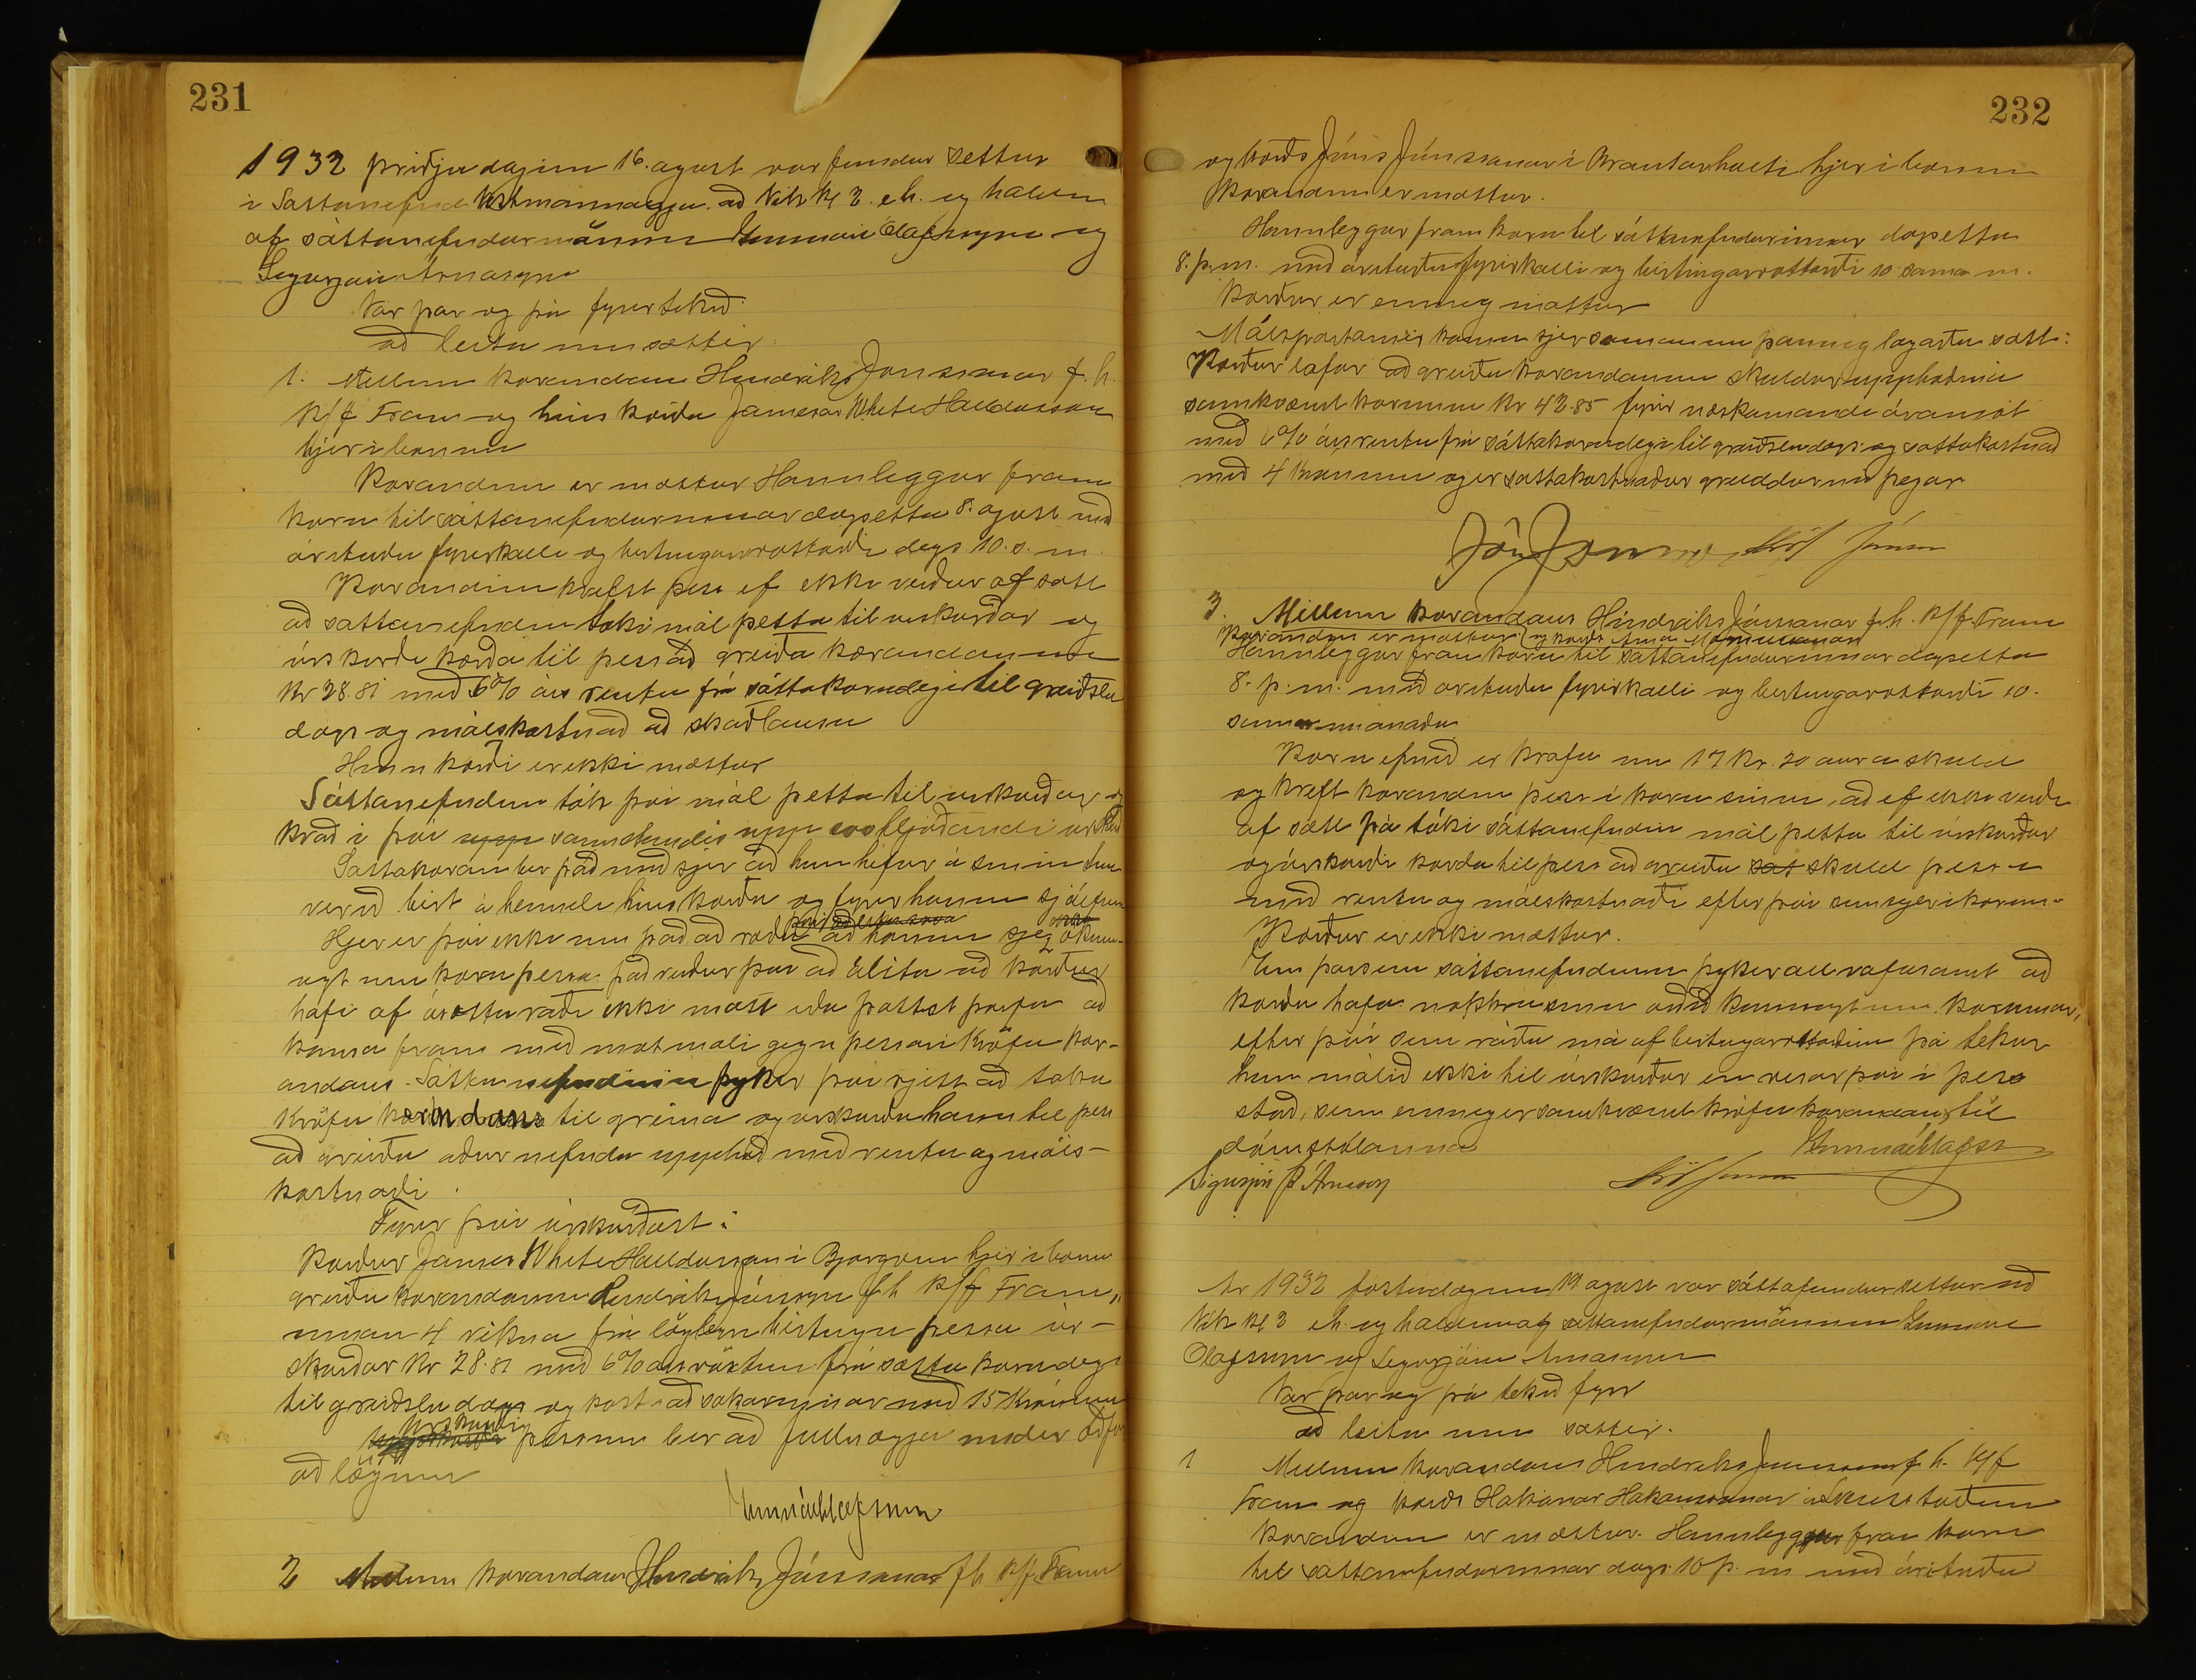 231
1932 þriðjudaginn 16. agust var fundur settur
i Sáttanefnd Vestmannaeyja að Vik kl 2. eh. og haldinn
af sáttanefndarmönnum Gunnari Olafssyni og
Sigurjóni Árnasyni
Var þar og þá fyrirtekið
að leita um sættir
1. Millum kærandans Hendriks Jónssonar f. h.
K/f Fram og hins kærða Jamesar White Halldorssonar
hjer i bænum
Kærandinn er mættur Hann leggur fram
kæru til sáttanefndarinnar dagsetta 8. agust með
árituðu fyrirkalli og birtingarvottorði dags 10. s. m.
Kærandinn krefst þess ef ekki verður af sátt
að sattanefndin taki mál þetta til urskurðar og
úrskurði kærða til þess að greiða kærandanum
Kr 28.81 með 6% árs rentu frá sáttakærudegi til greiðslu
dags og málskostnað að skaðlausu
Hinn kærði er ekki mættur
Sáttanefndin tók þvi mál þetta til urskurðar og
kvað i þvi upp samstundis upp svo hljóðandi urskurð
Sattakæran ber það með sjer að hun hefur á sinum tima
verið birt á heimili hins kærða og fyrir honum sjálfum
Hjer er þvi ekki um það að ræða að honum sje ókunn-
ugt um kæru þessa. það verður þvi að álita að kærður
hafi af ásettu ráði ekki mætt eða þottst þurfa að
koma fram með motmæli gegn þessari kröfu kær-
andans. Sáttanefndinni þykir þvi rjett að taka
kröfu kærandans til greina og urskurða hann til þess
að greiða aður nefnda upphæð með rentu og máls-
kostnaði.
Fyrir þvi úrskurðast:
Kærður James White Halldorsson i Bjorgvin hjer i bænum
greiði kærandanum Hendriki Jónssyni fh K/f Fram,,
innan 4 vikna frá löglegri birtingu þessa úr-
skurðar Kr 28.81 með 6% ársvöxtum frá sátta kærudegi
til greiðsludags og kostnað sakarinnar með 15 Krónum
Urskurði
þessum ber að fullnægja undir aðför
að lögum
Gunnar Olafsson
2 Millum kærandans Hendriks Jónssonar fh K/f. Fram
232
og kærðs Jóns Jónssonar i Brautarholti hjer i bænum
Kærandinn er mættur.
Hann leggur fram kæru til sáttanefndarinnar dagsetta
8. þ. m. með árituðu fyrirkalli og birtingarvottorði 10 sama m.
Kærður er einnig mættur
Málspartarnir koma sjer saman um þannig lagaða sátt:
Kærður lofar að greiða kærandanum skuldarupphæðina
samkvæmt kærunni Kr 42.85 fyrir næstkomandi áramót
með 6% ársrentu frá sáttakærudegi til greiðsludags og sattakostnað
með 4 krónum og er sattakostnaður greiddur nú þegar
Jón Jónsson
3. Millum kærandans Hindriks Jónssonar f.h. K/f Fram
Kærandinn er mættur
Hann leggur fram kæru til sattanefndarinnar dagsetta
8. þ. m. með arituðu fyrirkalli og birtingarvottorði 10.
sama manaðar
Kæru efnið er krafa um 17 Kr. 20 aura skuld
og kreft kærandinn þess i kæru sinni, að ef ekki verði
af sátt þá táki sáttanefndin mál þetta til úrskurðar
og úrskurði kærða til þess að greiða sát skuld þessa
með rentu og málskostnaði eftir þvi sem segir i kærunni
Kærður er ekki mættur.
En þar sem sáttanefndinni þykir all vafasamt að
kærði hafi nokkru sinni orðið kunnugt um kæruna,
eftir þvi sem ráða má af birtingarvottorðinu þá tekur
hun málið ekki til úrskurðar en visar þvi i þess
stað, sem einnig er samkvæmt kröfu kærandans, til
dómstólanna
Gunnar Olafsson
Sigurjón Þ Árnason
Ar 1932 fostudaginn 19 agust var sáttafundur settur að
Vik kl 2 eh. og haldinn af sáttanefndarmönnum Gunnari
Olafssyni og Sigurjóni Arnasyni
Var þar og þá tekið fyrir
að leita um sættir.
1 Millum kærandans Hendriks Jónssonar f. h. K/f
Fram og kærðs Hakonar Hakonssonar
Kærandinn er mættur. Hann leggur fram kæru
til sattanefndarinnar dags. 10 þ. m með árituðu